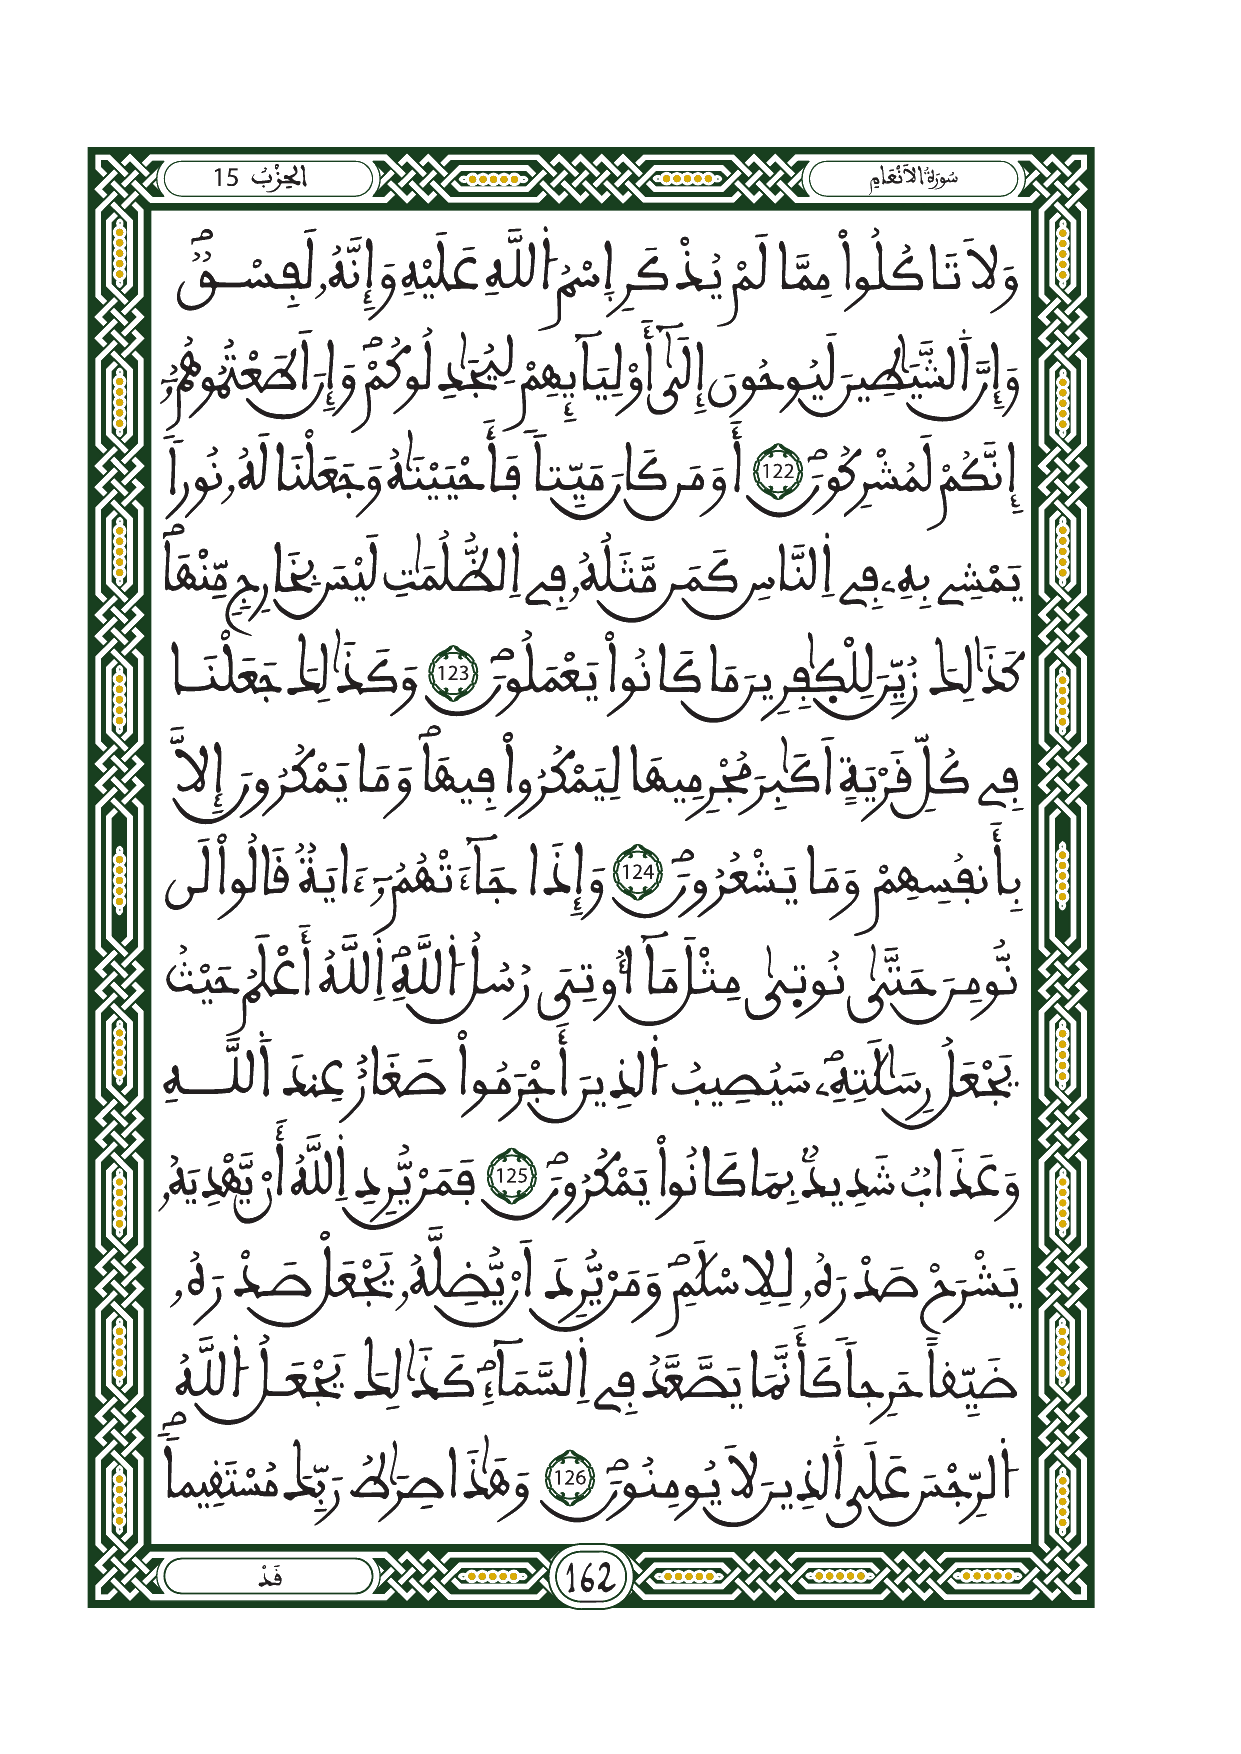 سُورَةُ الْأَنْعَامِ
الْحِزْبُ 15
وَلَا تَاكُلُواْ مِمَّا لَمْ يُذْكَرِ إِسْمُ اُللَّهِ عَلَيْهِ وَإِنَّهُۥ لَفِسْقٌ
وَإِنَّ اَلشَّيَٰطِينَ لَيُوحُونَ إِلَىٰٓ أَوْلِيَآئِهِمْ لِيُجَٰدِلُوكُمْ وَإِنَ اَطَعْتُمُوهُمُۥٓ
إِنَّكُمْ لَمُشْرِكُونَ 122 أَوَمَن كَانَ مَيِّتاً فَأَحْيَيْنَٰهُ وَجَعَلْنَا لَهُۥ نُوراً
يَمْشِے بِهِۦ فِے اِلنَّاسِ كَمَن مَّثَلُهُۥ فِے اِلظُّلُمَٰتِ لَيْسَ بِخَارِجٍ مِّنْهَا
كَذَٰلِكَ زُيِّنَ لِلْكٰ۪فِرِينَ مَا كَانُواْ يَعْمَلُونَ 123 وَكَذَٰلِكَ جَعَلْنَا
فِے كُلِّ قَرْيَةٍ اَكَٰبِرَ مُجْرِمِيهَا لِيَمْكُرُواْ فِيهَا وَمَا يَمْكُرُونَ إِلَّا
بِأَنفُسِهِمْ وَمَا يَشْعُرُونَ 124 وَإِذَا جَآءَتْهُمُۥٓ ءَايَةٌ قَالُواْ لَن
نُّومِنَ حَتَّىٰ نُوتٜىٰ مِثْلَ مَآ أُوتِىَ رُسُلُ اُللَّهِ اِللَّهُ أَعْلَمُ حَيْثُ
يَجْعَلُ رِسَٰلَٰتِهِۦ سَيُصِيبُ اُلذِينَ أَجْرَمُواْ صَغَارٌ عِندَ اَللَّهِ
وَعَذَابٌ شَدِيدٌۢ بِمَا كَانُواْ يَمْكُرُونَ 125 فَمَنْ يُّرِدِ اِللَّهُ أَنْ يَّهْدِيَهُۥ
يَشْرَحْ صَدْرَهُۥ لِلِاسْلَٰمِ وَمَنْ يُّرِدَ اَنْ يُّضِلَّهُۥ يَجْعَلْ صَدْرَهُۥ
ضَيِّقاً حَرِجاً كَأَنَّمَا يَصَّعَّدُ فِے اِلسَّمَآءِ كَذَٰلِكَ يَجْعَلُ اُللَّهُ
اُلرِّجْسَ عَلَى اَلذِينَ لَا يُومِنُونَ 126 وَهَٰذَا صِرَٰطُ رَبِّكَ مُسْتَقِيماً
قَدْ
162